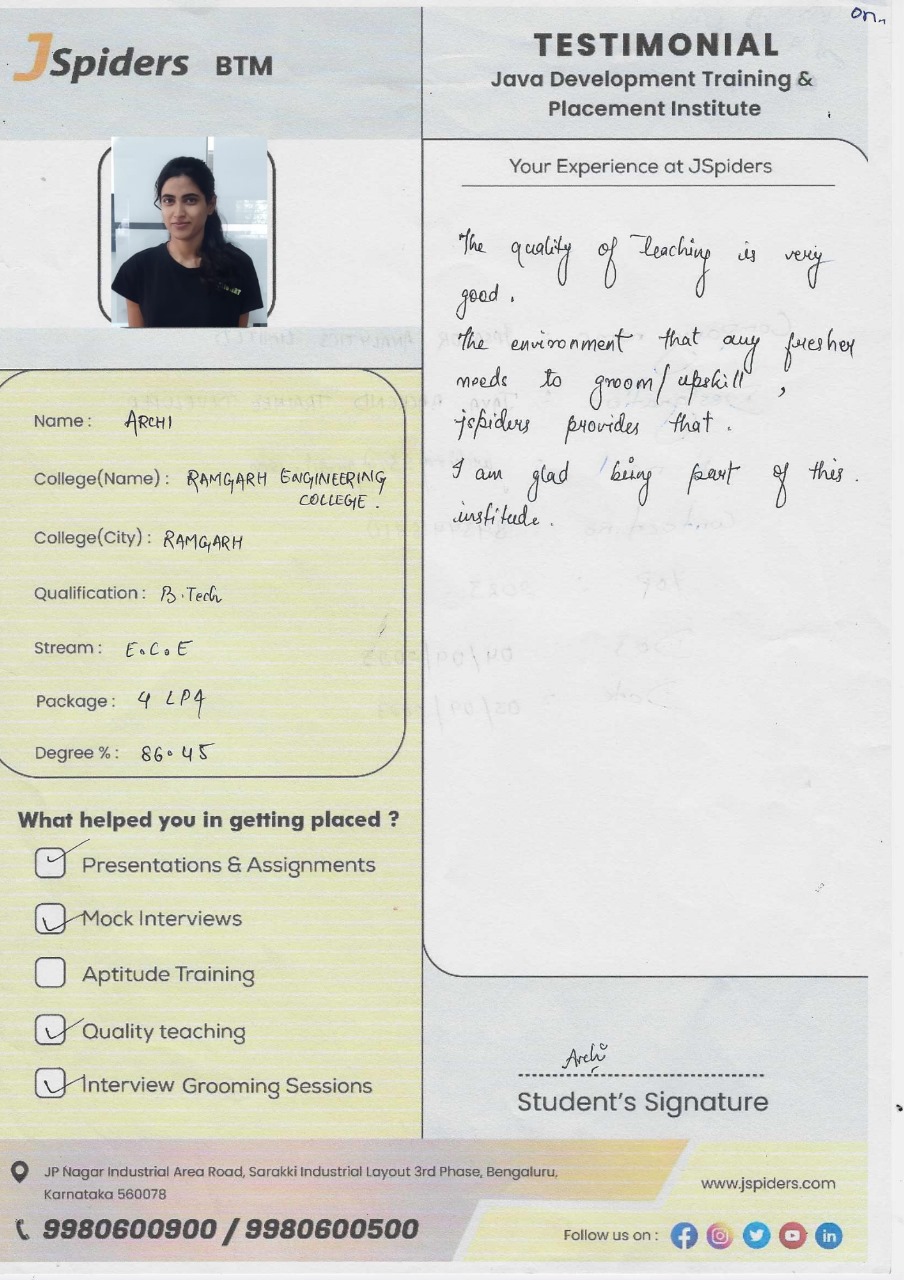 on.
JSpiders BTM
TESTIMONIAL
Java Development Training &
Placement Institute
Your Experience at JSpiders
The quality of teaching is very
good.
The environment that any fresher
needs to groom/upskill,
jspiders provides that.
I am glad being part of this.
institude.
Name: ARCHI
College(Name): RAMGARH ENGINEERING
COLLEGE.
College(City): RAMGARH
Qualification: B.Tech
Stream: E.C.E
Package: 4 LPA
Degree %: 86.45
What helped you in getting placed ?
Presentations & Assignments
Mock Interviews
Aptitude Training
Quality teaching
Interview Grooming Sessions
Archi
Student's Signature
JP Nagar Industrial Area Road, Sarakki Industrial Layout 3rd Phase, Bengaluru,
Karnataka 560078
9980600900 / 9980600500
www.jspiders.com
Follow us on :